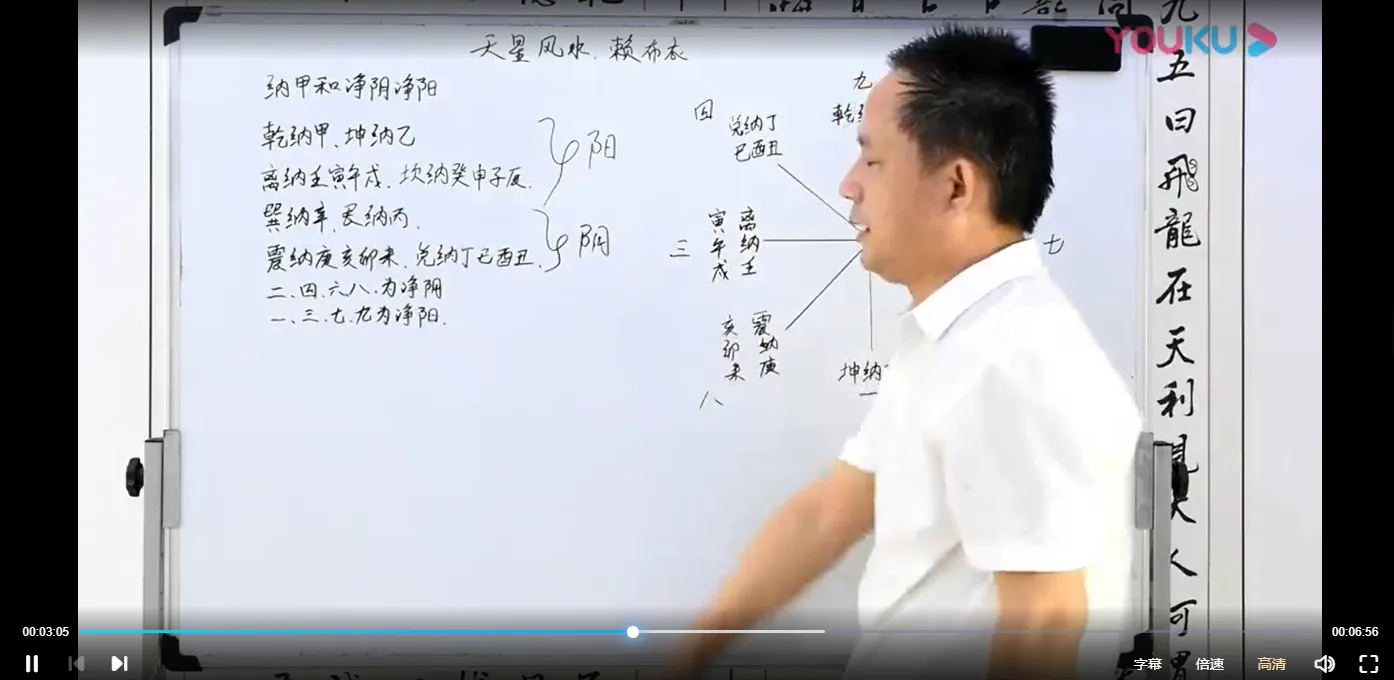 天星风水、赖布衣
纳甲和净阴净阳
乾纳甲、坤纳乙
离纳壬寅午戌、坎纳癸申子辰.
阳
巽纳辛、艮纳丙、
震纳庚亥卯未、兑纳丁巳酉丑、
阴
二、四、六、八、为净阴
一、三、七、九为净阳.
四
兑纳丁
巳酉丑
九
乾纳
三
寅午戌
离纳壬
七
亥卯未
震纳庚
八
坤纳
一
九五曰飛龍在天利見大人何謂
YOUKU
00:03:05
00:06:56
字幕
倍速
高清